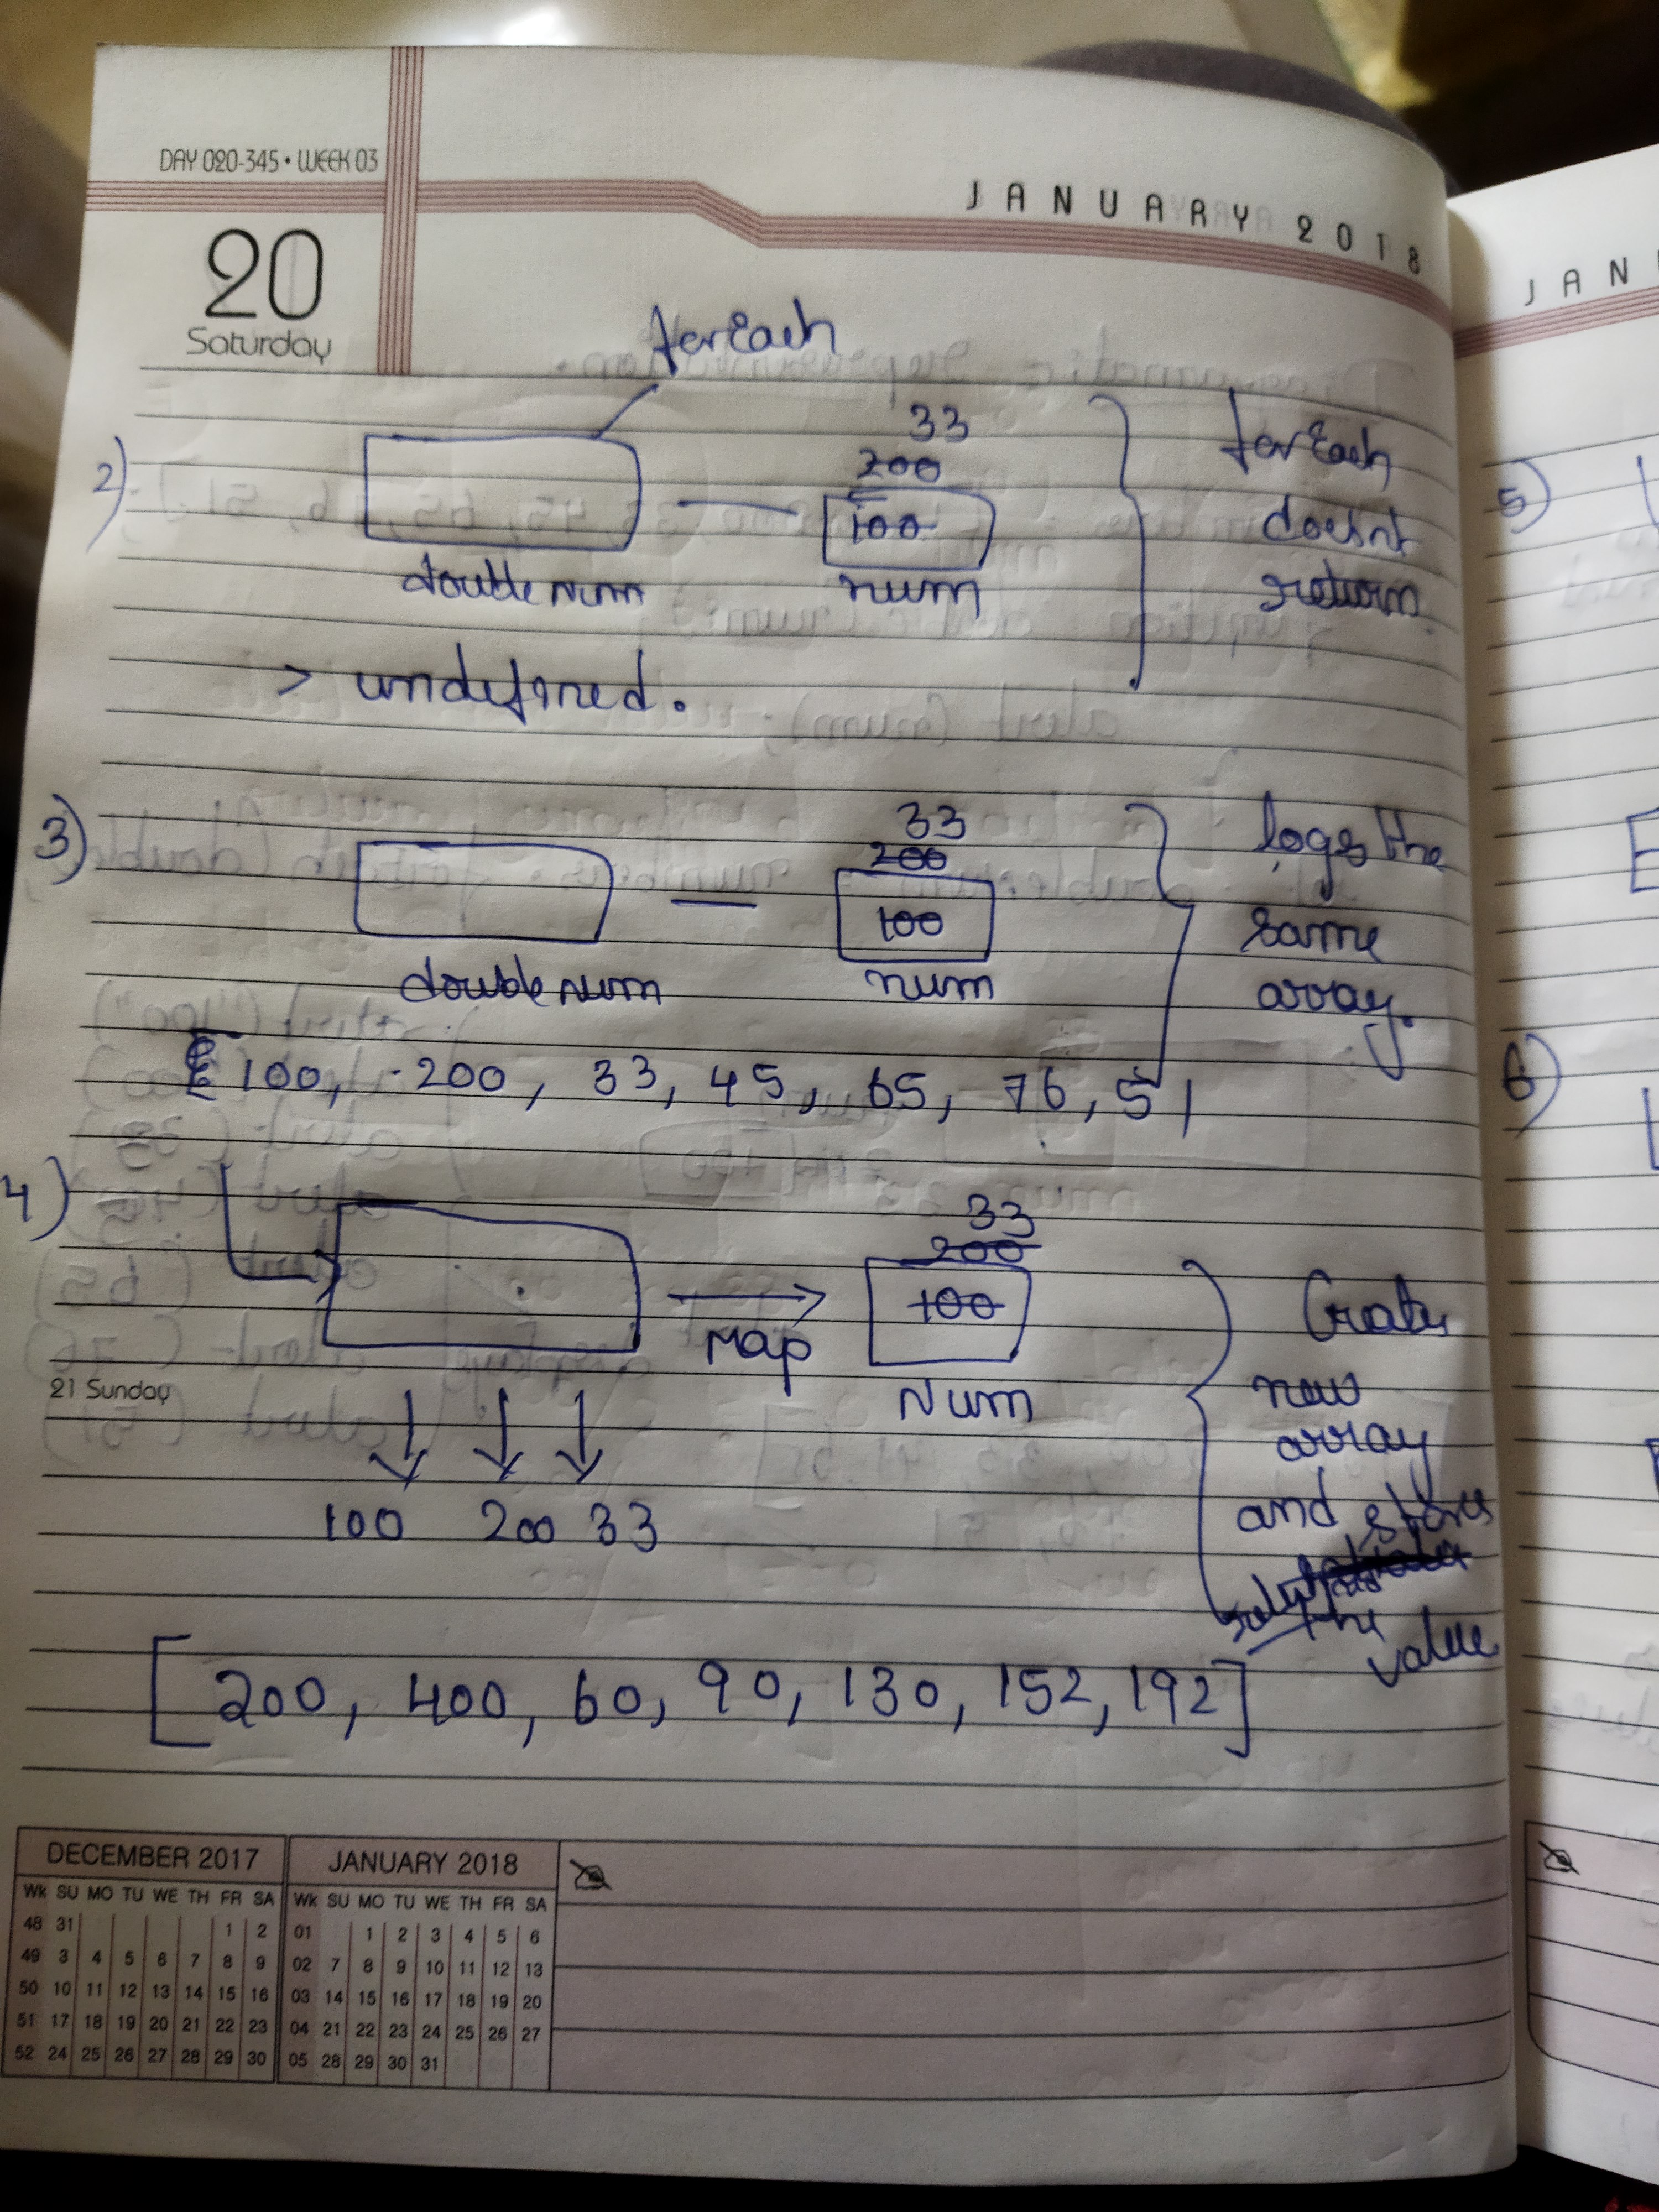 DAY 020-345 • WEEK 03
JANUARY 2018
20
Saturday
forEach
2)
33
200
100
doublenum
num
forEach
doesnt
return
> undefined.
3)
33
200
100
doublenum
num
logs the
same
array.
100, 200, 33, 45, 65, 76, 51
4)
33
200
100
Map
Num
Creates
new
array
and stores
the
value
21 Sunday
100 200 33
[200, 400, 60, 90, 130, 152, 192]
DECEMBER 2017
Wk SU MO TU WE TH FR SA
48 31 1 2
49 3 4 5 6 7 8 9
50 10 11 12 13 14 15 16
51 17 18 19 20 21 22 23
52 24 25 26 27 28 29 30
JANUARY 2018
Wk SU MO TU WE TH FR SA
01 1 2 3 4 5 6
02 7 8 9 10 11 12 13
03 14 15 16 17 18 19 20
04 21 22 23 24 25 26 27
05 28 29 30 31
JAN
5)
6)